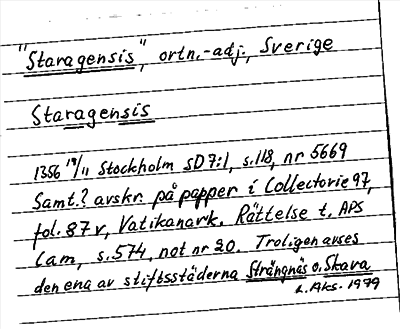 "Staragensis", ortn.-adj., Sverige
Staragensis
1356 18/11 Stockholm SD 7:1, s.118, nr 5669
Samt.? avskr. på papper i Collectorie 97,
fol. 87 v, Vatikanark. Rättelse t. APS
Cam, s.574, not nr 20. Troligen avses
den ena av stiftsstäderna Strängnäs o. Skara
L. Aks. 1979